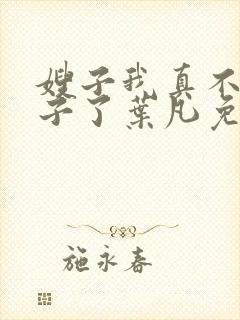 嫂子我真不
子了葉凡免
施永春